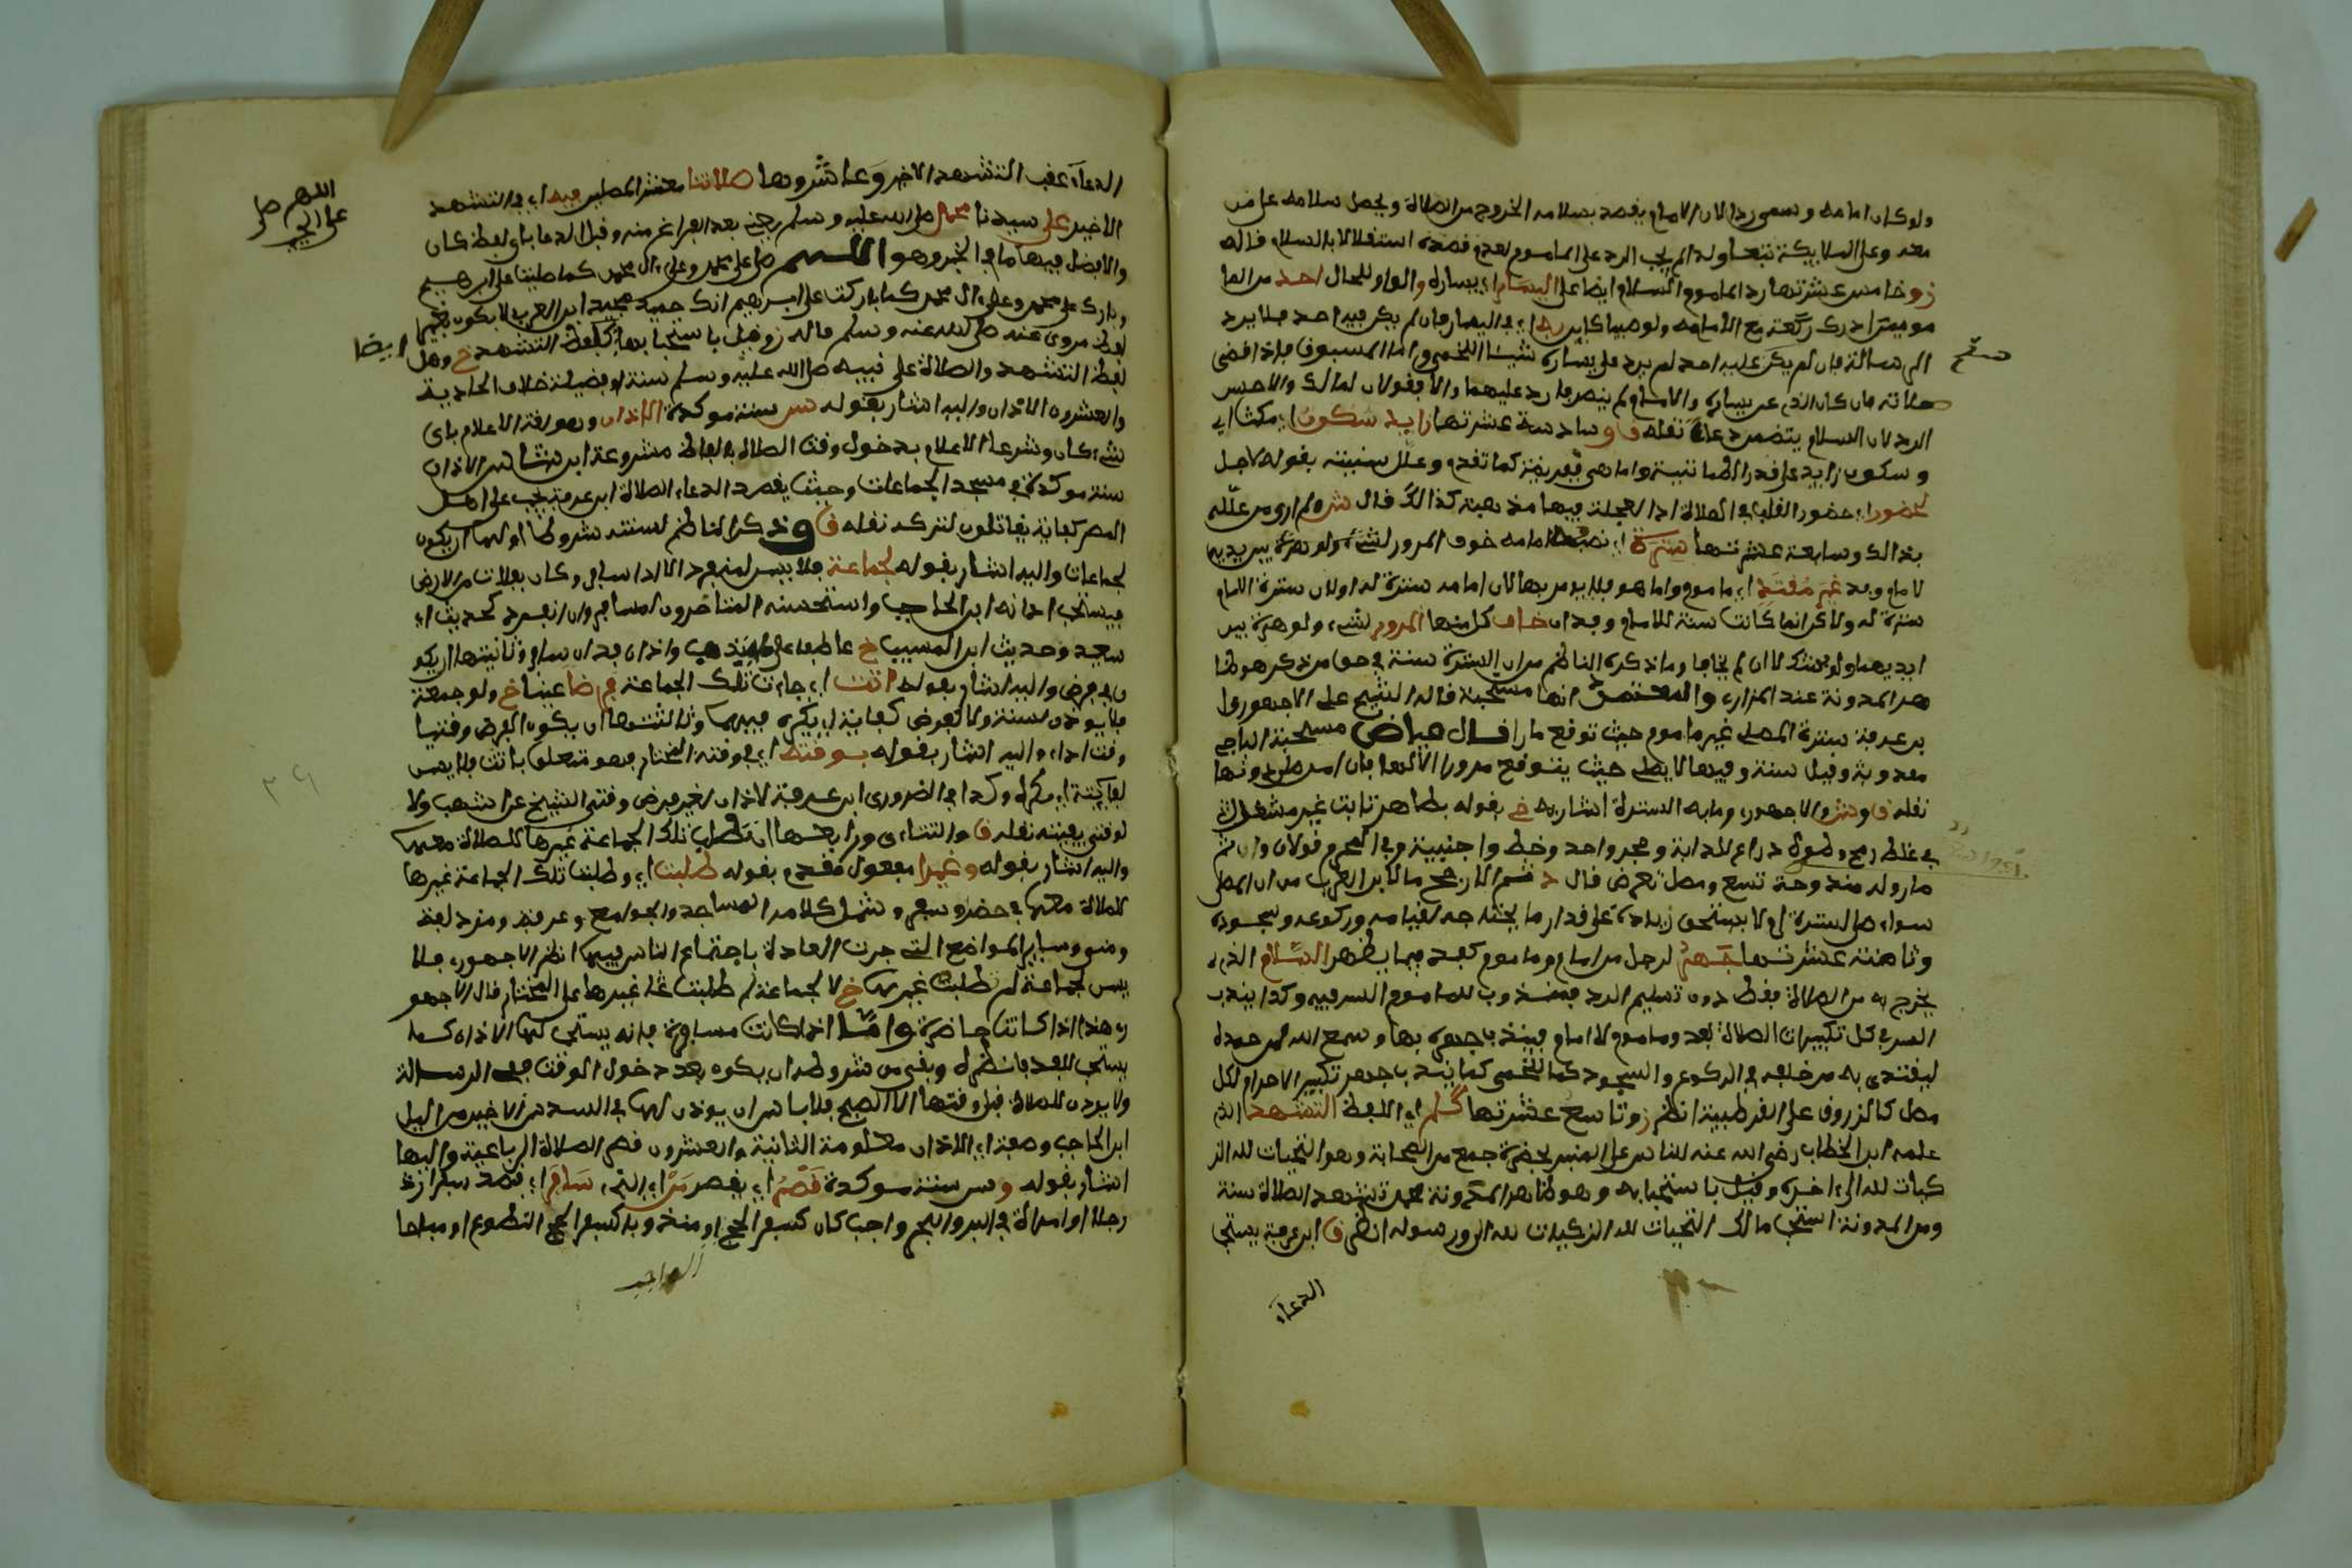 ولو كان امامه وسمي ردا لان الامام يقصد بسلامه الخروج من الصلاة ويجعل سلامه على من
معه وعلى الملايكة تبعا ولذا لم يجب الرد على الماموم لعدم قصده استقلالا بالسلام قاله
ز وخامس عشرتها رد الماموم السلام ايضا على اليسار اي يساره والواو للحال احد من الما
مومين ادرك ركعة مع الامام ولو صبيا كاين به اي في اليسار فان لم يكن فيه احد فلا يرد
الرسالة فان لم يكن عليه احد لم يرد على يساره شيئا اللخمي واما المسبوق فاذا قضى
صلاته فان كان الذي عن يساره والامام لم ينصرفا رد عليهما والا فقولان لمالك والاحسن
الرد لان السلام يتضمن دعاء نقله ق وسادسة عشرتها زايد سكون اي مكث اي
وسكون زايد على قدر الطمانينة واما هي ففريضة كما تقدم وعلل سنيته بقوله لاجل
لحضور اي حضور القلب في الصلاة اذ العجلة فيها مذهبة كذالك قال ش ولم ارى من علله
بذالك وسابعة عشرتها سترة اي نصبها امامه خوف المرور لشيء ولو هرة بين يديه
لامام وفذ غير مقتد اي ماموم واما هو فلا يومر بها لان امامه سترة له او لان سترة الامام
سترة له ولاكن انما كانت سنة للامام وفذ ان خاف كل منها المرور لشيء ولو هرة بين
ايديهما ولو بشك لا ان لم يخافا وما ذكره الناظم من ان السترة سنة في حق من ذكر هو ظا
هر المدونة عند المازري والمعتمد انها مستحبة قاله الشيخ علي الاجهوري وا
بن عرفة سترة المصلي غير ماموم حيث توقع مارا قال عياض مستحبة الباجي
مندوبة وقيل سنة وفيها لا يصلي حيث يتوقع مرورا الا لها فان امن صلى دونها
نقله ق و ش والاجهوري وما به السترة اشار له خ بقوله بطاهر ثابت غير مشغل
في غلظ رمح وطول ذراع لا دابة وحجر واحد وخط واجنبية وفي المحرم قولان واثم
مار وله مندوحة ومصل تعرض قال
سواء صلى لسترة ام لا يستحق زيادة على قدر ما يحتاجه لقيامه وركوعه وسجوده
وثامنة عشرتها جهر لرجل من امام وماموم كفذ فيما يظهر السلام الذي
يخرج به من الصلاة فقط دون تسليم الرد فمندوب للماموم السر فيه وكذا يندب
السر في كل تكبيرات الصلاة لفذ وماموم لا امام فيندب جهره بها وسمع الله لمن حمده
ليقتدي به من خلفه في الركوع والسجود كما للخمي كما يندب جهر تكبير الاحرام لكل
مصل كما لزروق على القرطبية انظر ز وتاسع عشرتها كلم اي اللفظ التشهد الذي
علمه ابن الخطاب رضي الله عنه للناس على المنبر بحضرة جمع من الصحابة وهو التحيات لله الز
كيات لله الى اخره وقيل باستحبابه وهو ظاهر المدونة تشهد الصلاة سنة
ومن المدونة استحب مالك التحيات لله الزكيات لله الى ورسوله انظر ق ابن عرفة يستحب
الدعاء
الدعاء عقب التشهد الاخير وعاشروها صلاتنا معشر المصلين فيه اي في التشهد
الاخير على سيدنا محمد صلى الله عليه وسلم يعني بعد الفراغ منه وقبل الدعا باي لفظ كان
والافضل فيها ما في الخبر وهو اللهم صل على محمد وعلى ال محمد كما صليت على ابرهيم
وبارك على محمد وعلى ال محمد كما باركت على ابرهيم انك حميد مجيد ابن العربي لا يكون
لفظ مروي عنه صلى الله عليه وسلم قاله ز وقيل باستحبابها كلفظ التشهد خ وهل
ايضا
لفظ التشهد والصلاة على نبيه صلى الله عليه وسلم سنة او فضيلة خلاف الحادية
والعشرون الاذان واليه اشار بقوله سن سنة موكدة الاذان وهو لغة الاعلام باي
شيء كان وشرعا الاعلام بدخول وقت الصلاة بالفاظ مشروعة ابن شاس الاذان
سنة موكدة في مسجد الجماعات وحيث يقصد الدعاء للصلاة ابن عرفة يجب على اهل
المصر كفاية يقاتلون لتركه نقله ق وذكر الناظم لسنته شروطا اولها ان يكون
لجماعات واليه اشار بقوله لجماعة فلا يسن لمنفرد الا اذا سافر وكان بفلات من الارض
فيستحب اذانه ابن الحاجب واستحسنه المتاخرون لمسافر وان انفرد لحديث ابي
سعيد وحديث ابن المسيب خ عاطفا على ما يندب واذان فذ ان سافر وثانيتها ان يكو
ن في فرض واليه اشار بقوله اتت اي جاءت تلك الجماعة فرضا عينيا خ ولو جمعة
فلا يوذن لسنة ولا لفرض كفاية اي يكره فيهما وثالثتها ان يكون الفرض وقتيا
وقت اداء واليه اشار بقوله بوقته اي في وقته المختار فهو متعلق باتت فلا يسن
لفايتة اي يكره وكذا في الضروري ابن عرفة لاذان لغير فرض وقتي الشيخ عن اشهب ولا
لوقتي يفيته نقله ق والتتاءي ورابعها ان تطلب تلك الجماعة غيرها للصلاة معها
واليه اشار بقوله وغيرا مفعول مقدم بقوله طلبت اي وطلبت تلك الجماعة غيرها
للصلاة معها في حضر وسفر وشمل كلامه المساجد والجوامع وعرفة ومزدلفة
ومنى وساير المواضع التي جرت العادة باجتماع الناس فيها انظر الاجهوري فلا
يسن لجماعة لم تطلب غيرها خ لا لجماعة لم تطلب غيرها على المختار قال الاجهو
ري هذا اذا كانت حاضرة واما اذا كانت مسافرة فانه يستحب لها الاذان كما
يستحب للفذ فانظره وبقي من شروطه ان يكون بعد دخول الوقت ففي الرسالة
ولا يوذن للصلاة قبل وقتها الا الصبح فلا باس ان يوذن لها في السدس الاخير من اليل
ابن الحاجب وصفة الاذان معلومة الثانية والعشرون قصر الصلاة الرباعية واليها
اشار بقوله وسن سنة موكدة قصر اي يقصر من اي الذي سافر اي قصد سفرا زي
رجلا او امراة في البر والبحر واجب كان كسفر الحج او مندوبا كسفر الحج التطوع او مباحا
اللهم صل
على النبي
٣٩